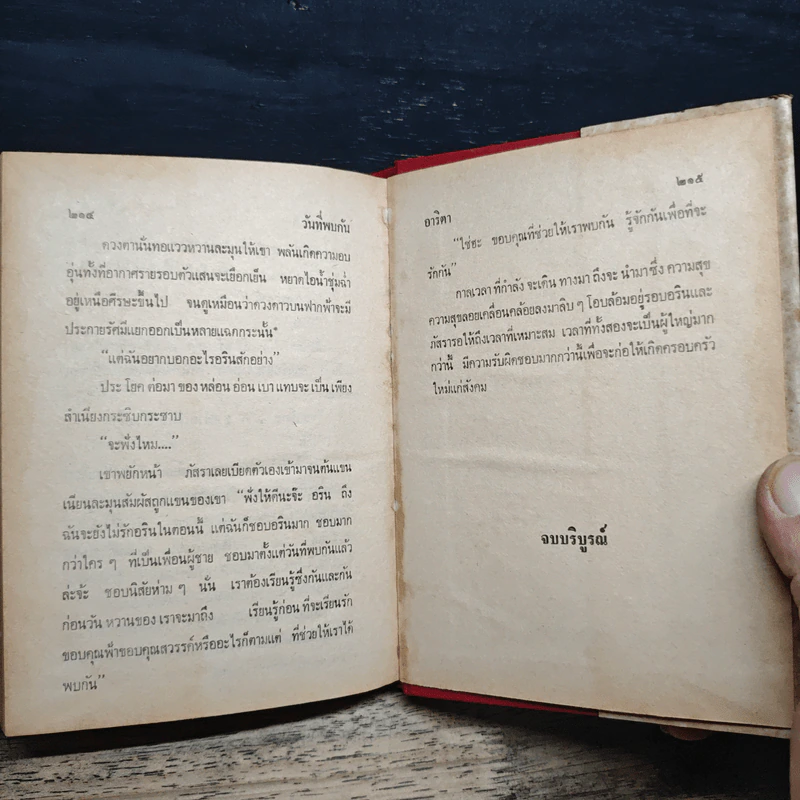 ๒๑๔ วันที่พบกัน
ดวงตานั่นทอแววหวานละมุนให้เขา พลันเกิดความอบ
อุ่นทั้งที่อากาศรายรอบตัวแสนจะเยือกเย็น หยาดไอน้ำชุ่มฉ่ำ
อยู่เหนือศีรษะขึ้นไป จนดูเหมือนว่าดวงดาวบนฟากฟ้าจะมี
ประกายรัศมีแยกออกเป็นหลายแฉกกระนั้น
“แต่ฉันอยากบอกอะไรอรินสักอย่าง”
ประโยคต่อมาของหล่อนอ่อนเบาแทบจะเป็นเพียง
สำเนียงกระซิบกระซาบ
“จะฟังไหม....”
เขาพยักหน้า ภัสราเลยเบียดตัวเองเข้ามาจนต้นแขน
เนียนละมุนสัมผัสถูกแขนของเขา “ฟังให้ดีนะจ๊ะ อริน ถึง
ฉันจะยังไม่รักอรินในตอนนี้ แต่ฉันก็ชอบอรินมาก ชอบมาก
กว่าใคร ๆ ที่เป็นเพื่อนผู้ชาย ชอบมาตั้งแต่วันที่พบกันแล้ว
ล่ะจ้ะ ชอบนิสัยห่าม ๆ นั่น เราต้องเรียนรู้ซึ่งกันและกัน
ก่อนวันหวานของเราจะมาถึง เรียนรู้ก่อนที่จะเรียนรัก
ขอบคุณฟ้าขอบคุณสวรรค์หรืออะไรก็ตามแต่ ที่ช่วยให้เราได้
พบกัน”
อาริตา ๒๑๕
“ใช่ฮะ ขอบคุณที่ช่วยให้เราพบกัน รู้จักกันเพื่อที่จะ
รักกัน”
กาลเวลาที่กำลังจะเดินทางมาถึงจะนำมาซึ่งความสุข
ความสุขลอยเคลื่อนคล้อยลงมาลิบ ๆ โอบล้อมอยู่รอบอรินและ
ภัสรารอให้ถึงเวลาที่เหมาะสม เวลาที่ทั้งสองจะเป็นผู้ใหญ่มาก
กว่านี้ มีความรับผิดชอบมากกว่านี้เพื่อจะก่อให้เกิดครอบครัว
ใหม่แก่สังคม
จบบริบูรณ์